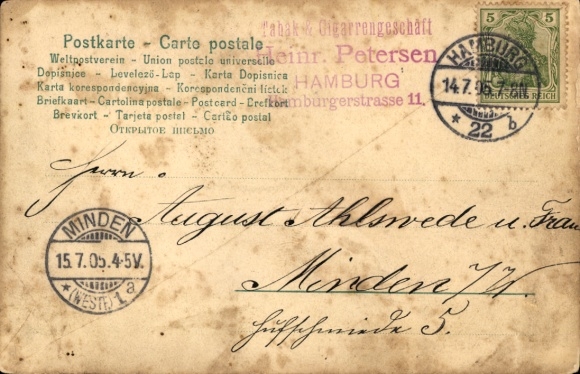 Postkarte - Carto postale
Weltpostverein - Union postale universelle
Dopisnice - Levelező-Lap - Karta Dopisnica
Karta korespondencyjna - Korespondenční lístek
Briefkaart - Cartolina postale - Postcard - Brefkort
Brevkort - Tarjeta postal - Cartão postal
Открытое письмо
Tabak & Cigarrengeschäft
Heinr. Petersen
HAMBURG
Hamburgerstrasse 11.
5 5
DEUTSCHES REICH
HAMBURG
14.7.05.7-8N.
* 22
Herrn
August Ahlswede u. Frau
Minden i/W.
Hufschmiede 5.
MINDEN
15.7.05.4-5V.
* (WESTF.) 1a